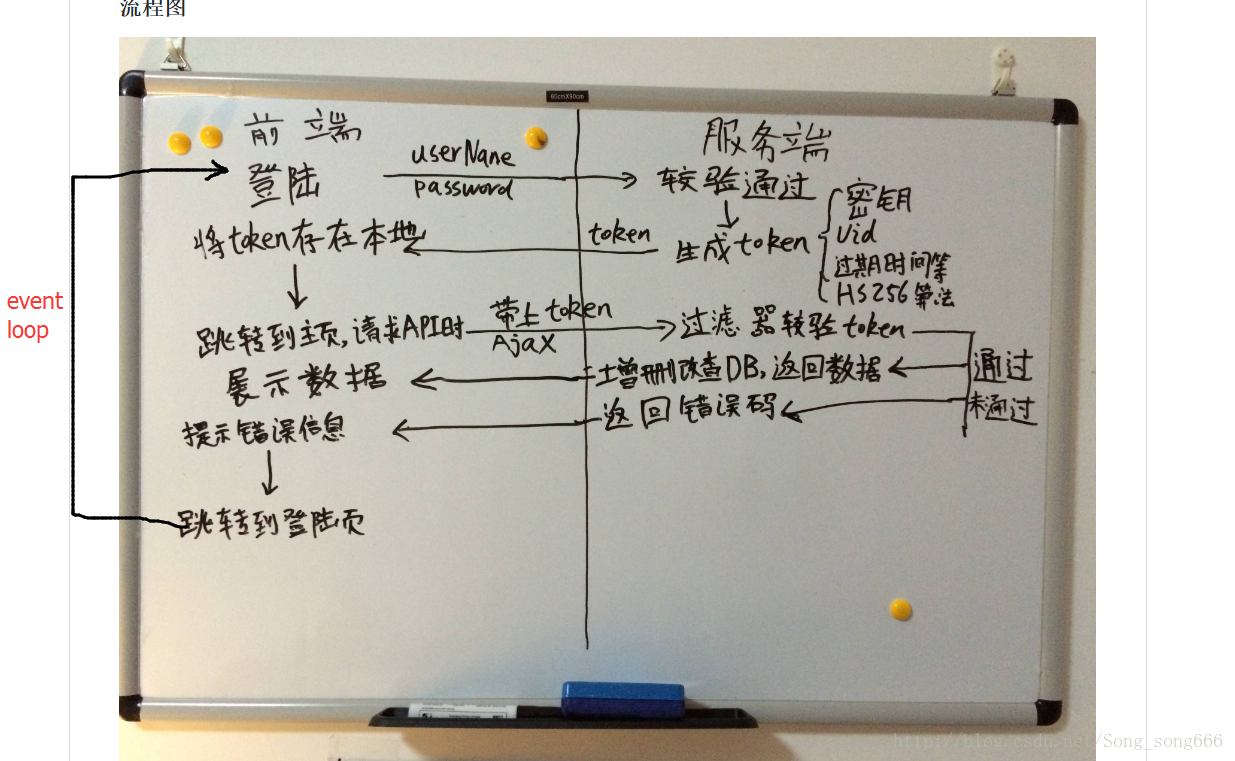 流程图
60cmX90cm
前端
服务端
登陆
userNane
password
较验通过
密钥
Uid
过期时间等
HS256算法
将token存在本地
token
生成token
event
loop
跳转到主页,请求API时
带上token
AjaX
过滤器较验token
展示数据
增删改查DB,返回数据
通过
提示错误信息
返回错误码
未通过
跳转到登陆页
http://blog.csdn.net/Song_song666